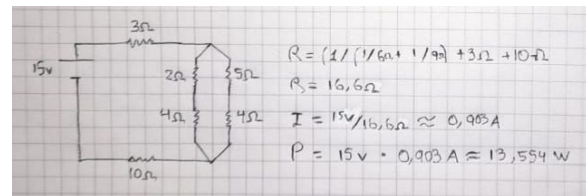 3Ω
15v
2Ω
5Ω
4Ω
4Ω
10Ω
R = (1/(1/6Ω + 1/9Ω) + 3Ω + 10Ω
R = 16,6Ω
I = 15v/16,6Ω ≈ 0,903A
P = 15v · 0,903A ≈ 13,554 W